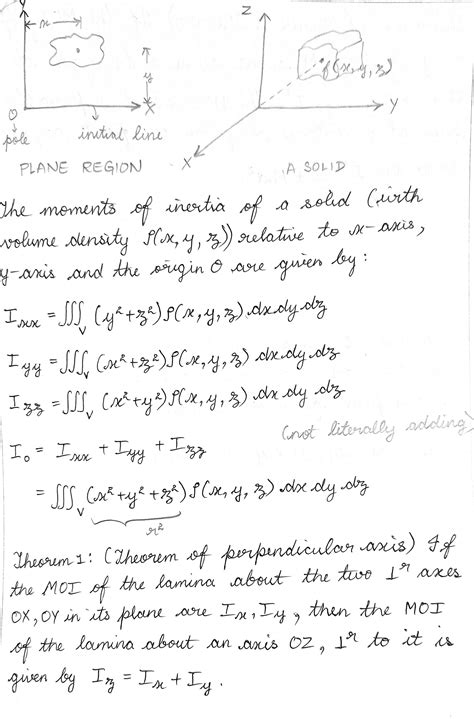 Y
x
Z
y
f(x, y, z)
O
X
Y
pole
initial line
X
PLANE REGION
A SOLID
The moments of inertia of a solid (with
volume density ρ(x, y, z)) relative to x-axis,
y-axis and the origin O are given by:
Ixx = ∭V (y²+z²) ρ(x, y, z) dx dy dz
Iyy = ∭V (x²+z²) ρ(x, y, z) dx dy dz
Izz = ∭V (x²+y²) ρ(x, y, z) dx dy dz
(not literally adding)
I₀ = Ixx + Iyy + Izz
= ∭V (x²+y²+z²) ρ(x, y, z) dx dy dz
r²
Theorem 1: (Theorem of perpendicular axis) If
the MOI of the lamina about the two ⊥ʳ axes
OX, OY in its plane are Ix, Iy, then the MOI
of the lamina about an axis OZ, ⊥ʳ to it is
given by Iz = Ix + Iy.